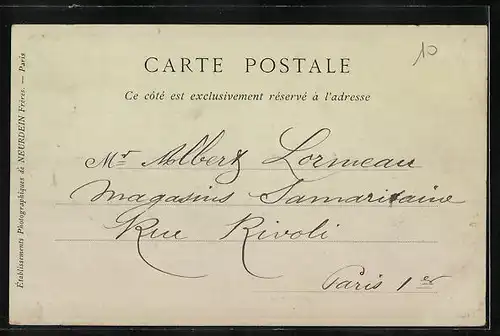 10
CARTE POSTALE
Ce côté est exclusivement réservé à l'adresse
Mr Albert Lormeau
Magasins Samaritaine
Rue Rivoli
Paris 1er
Établissements Photographiques de NEURDEIN Frères. — Paris